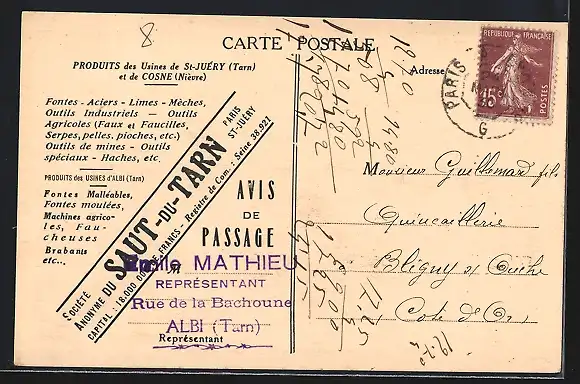 8.
CARTE POSTALE
PRODUITS des Usines de St-JUÉRY (Tarn)
et de COSNE (Nièvre)
Fontes - Aciers - Limes - Mèches,
Outils Industriels — Outils
Agricoles (Faux et Faucilles,
Serpes, pelles, pioches, etc.)
Outils de mines - Outils
spéciaux - Haches, etc.
PRODUITS DES USINES D'ALBI (Tarn)
Fontes Malléables,
Fontes moulées,
Machines agrico-
les, Fau-
cheuses
Brabants
etc...
SOCIÉTÉ
ANONYME DU SAUT-DU-TARN PARIS
ST-JUÉRY
CAPITAL : 18.000.000 FRANCS - Registre de Com. : Seine 38.921
AVIS
DE
PASSAGE
Emile MATHIEU
REPRÉSENTANT
Rue de la Bachoune
ALBI (Tarn)
Représentant
Adresse
REPUBLIQUE FRANÇAISE
15c
POSTES
PARIS
G
Monsieur Guillemard fils
Quincaillerie
Bligny s/ Ouche
Cote d'Or